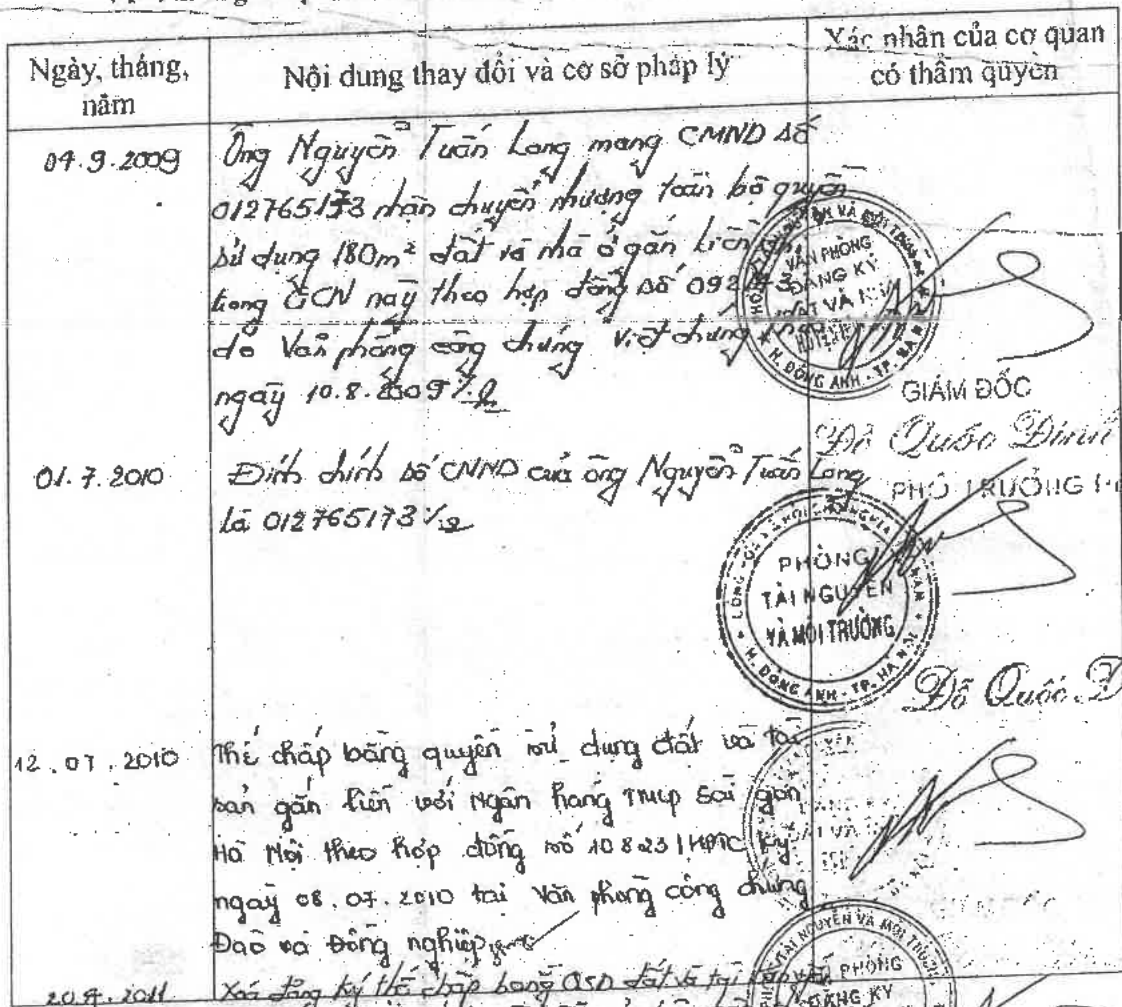 Ngày, tháng,
năm
Nội dung thay đổi và cơ sở pháp lý
Xác nhận của cơ quan
có thẩm quyền
04.9.2009
Ông Nguyễn Tuấn Long mang CMND số
012765173 nhận chuyển nhượng toàn bộ quyền
sử dụng 180m² đất và nhà ở gắn liền
trong GCN này theo hợp đồng số 092
do Văn phòng công chứng Việt chung
ngày 10.8.2009
VĂN PHÒNG
ĐĂNG KÝ
ĐẤT VÀ NHÀ
H. ĐÔNG ANH - TP. HÀ N
GIÁM ĐỐC
Đỗ Quốc Đình
01.7.2010
Đính chính số CMND của ông Nguyễn Tuấn Long
là 012765173
PHÓ TRƯỞNG
PHÒNG
TÀI NGUYÊN
VÀ MÔI TRƯỜNG
H. ĐÔNG ANH - TP. HÀ NỘI
Đỗ Quốc Đ
12.07.2010
Thế chấp bằng quyền sử dụng đất và tài
sản gắn liền với Ngân hàng TMCP Sài gòn
Hà Nội theo hợp đồng số 10823/HĐTC ký
ngày 08.07.2010 tại Văn phòng công chứng
Đào và Đồng nghiệp
20.4.2011
Xoá đăng ký thế chấp bằng QSD đất và tài
PHÒNG
ĐĂNG KÝ